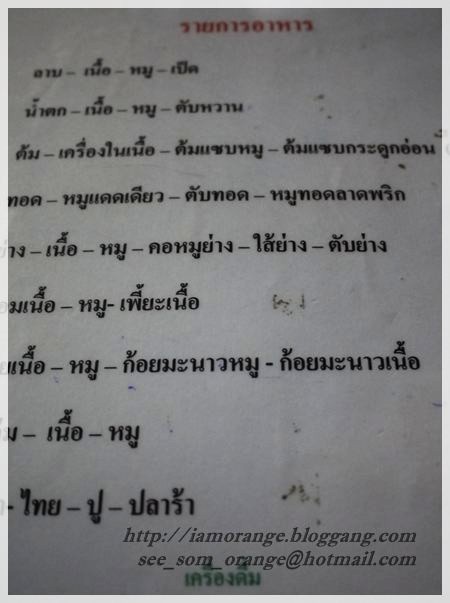 รายการอาหาร
ลาบ – เนื้อ – หมู – เป็ด
น้ำตก – เนื้อ – หมู – ตับหวาน
ต้ม – เครื่องในเนื้อ – ต้มแซบหมู – ต้มแซบกระดูกอ่อน
ทอด – หมูแดดเดียว – ตับทอด – หมูทอดลาดพริก
าง – เนื้อ – หมู – คอหมูย่าง – ไส้ย่าง – ตับย่าง
อมเนื้อ – หมู- เพี้ยะเนื้อ
ยเนื้อ – หมู – ก้อยมะนาวหมู - ก้อยมะนาวเนื้อ
– เนื้อ – หมู
- ไทย – ปู – ปลาร้า
http://iamorange.bloggang.com
see_som_orange@hotmail.com
เครื่องดื่ม